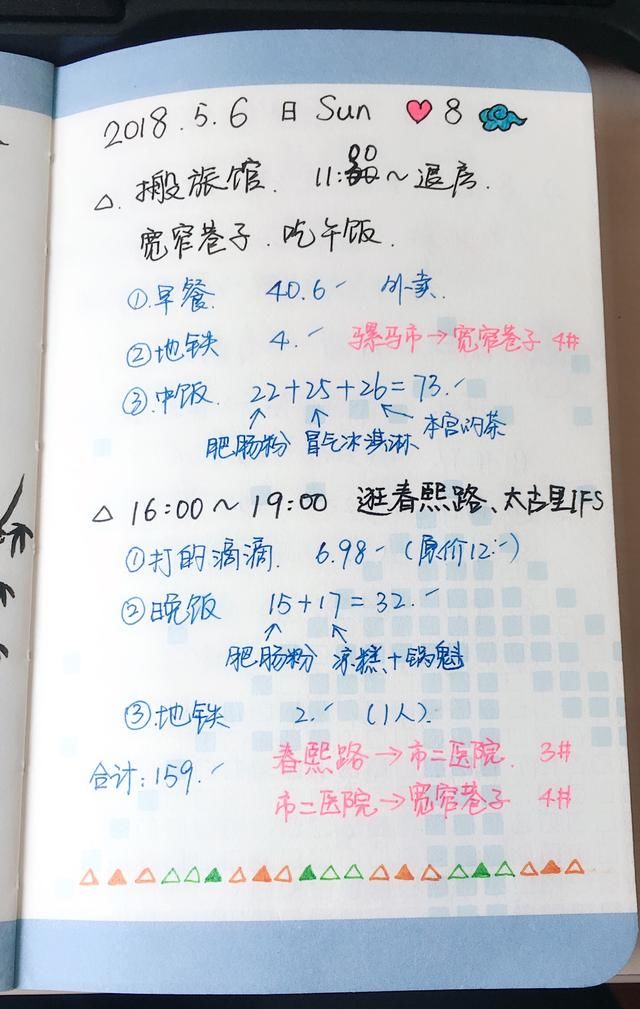 2018.5.6 日 Sun ♥ 8
△. 搬旅馆. 11:00~退房.
宽窄巷子.吃午饭.
①.早餐. 40.6 外卖.
②地铁 4. 骡马市→宽窄巷子 4#
③.中饭. 22+25+26=73.
肥肠粉 冒气冰淇淋 本宫的茶
△ 16:00~19:00 逛春熙路、太古里IFS
①打的滴滴. 6.98 (原价12.)
②晚饭 15+17=32.
肥肠粉 凉糕+锅魁
③.地铁 2. (1人).
合计:159.
春熙路→市二医院. 3#
市二医院→宽窄巷子 4#